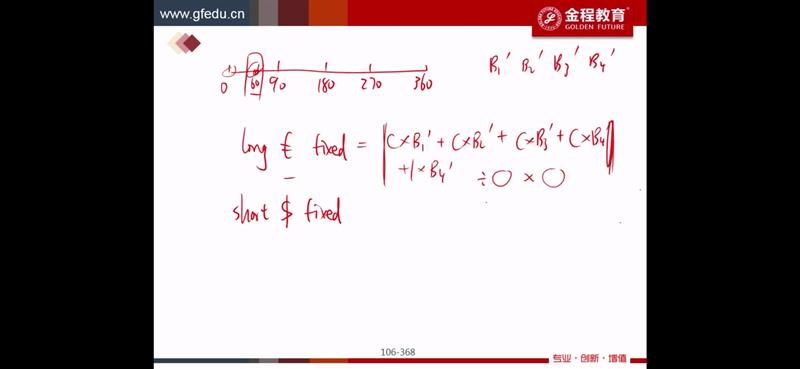 www.gfedu.cn
金程教育
GOLDEN FUTURE
B₁' B₂' B₃' B₄'
0 60 90 180 270 360
long £ fixed = C×B₁' + C×B₂' + C×B₃' + C×B₄
+1×B₄' ÷○ ×○
short $ fixed
106-368
专业·创新·增值